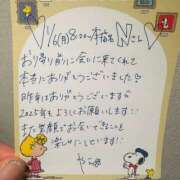 1/6(月) 8:00〜 本指名 Nさん
お帰り前に会いに来てくれて
本当にありがとうございました!!
昨年はありがとうございました
2025年もよろしくお願いします!!
また笑顔でお会いできることを
楽しみにしています!!